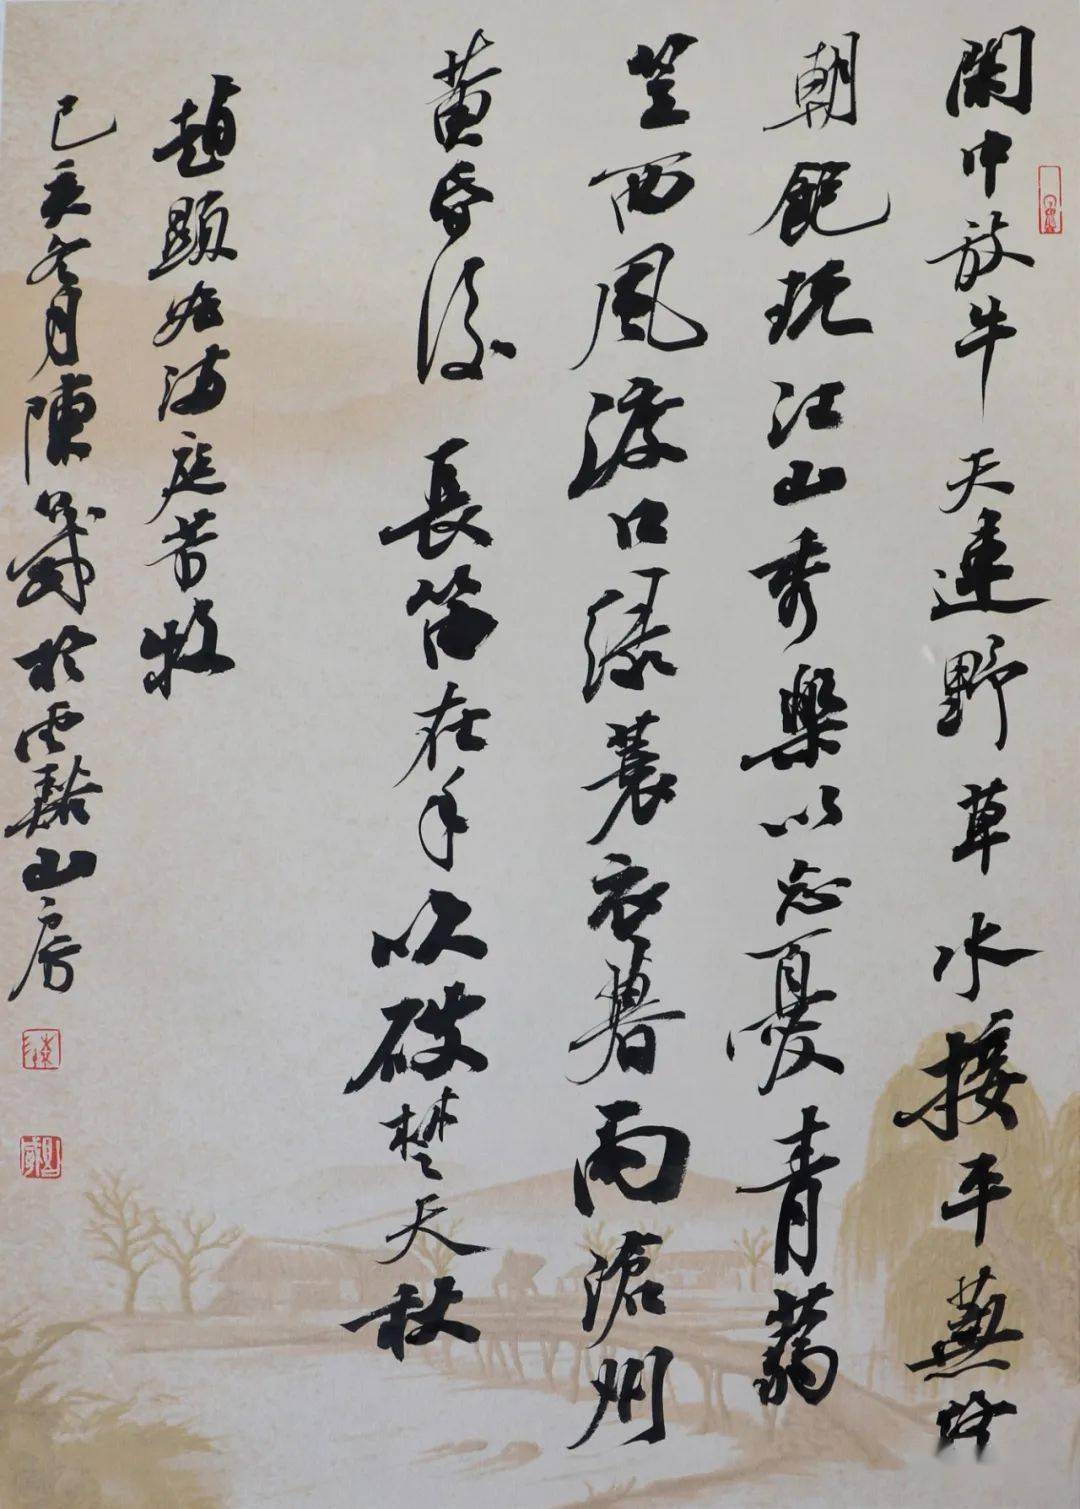 閑中放牛天連野草水接平蕪終
朝飽玩江山秀樂以忘憂青蒻
笠西風渡口綠蓑衣暮雨滄州
黃昏後長笛在手吹破楚天秋
趙顯宏滿庭芳牧
己亥冬月陳於雲谿山房